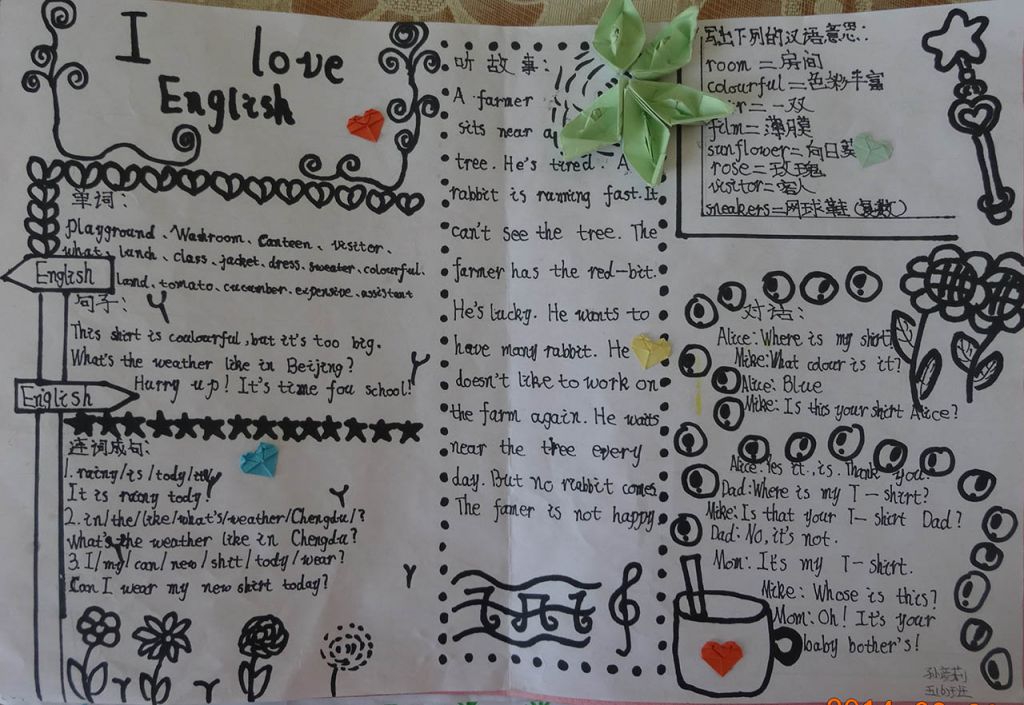 I love
English
单词:
Playground、Washroom、Canteen、visitor、
what、lanch、class、jacket、dress、sweater、colourful、
English
land、tomato、cucumber、expensive、assistant
句子:
This shirt is coulourful,but it's too big.
What's the weather like in Beijing?
Hurry up! It's time fou school!
English
连词成句:
1. rainy/is/tody/
It is rainy tody!
2. in/the/like/what's/weather/Chengdu/?
what's the weather like in Chengdu?
3. I/my/can/new/shtt/tody/wear?
Can I wear my new shirt today?
听故事:
A farmer
sits near a
tree. He's tired. A
rabbit is running fast.It
can't see the tree. The
farmer has the red-bit.
He's lucky. He wants to
have many rabbit. He
doesn't like to work on
the farm again. He waits
near the tree every
day. But no riabbit comes
The famer is not happy
写出下列的汉语意思:
room=房间
colourful=色彩丰富
=一双
film=薄膜
sunflower=向日葵
rose=玫瑰
visitor=客人
sneakers=网球鞋(复数)
对话:
Alice:Where is my shirt
Mike:What colour is it?
Alice: Blue
Mike: Is this your shirt Alice?
Alice: Yes it,is. Thank you.
Dad:Where is my T-shirt?
Mike:Is that your T-shirt Dad?
Dad: NO,it's not.
Mom: It's my T-shirt.
Mike: Whose is this?
Mom:Oh! It's your
baby bother's!